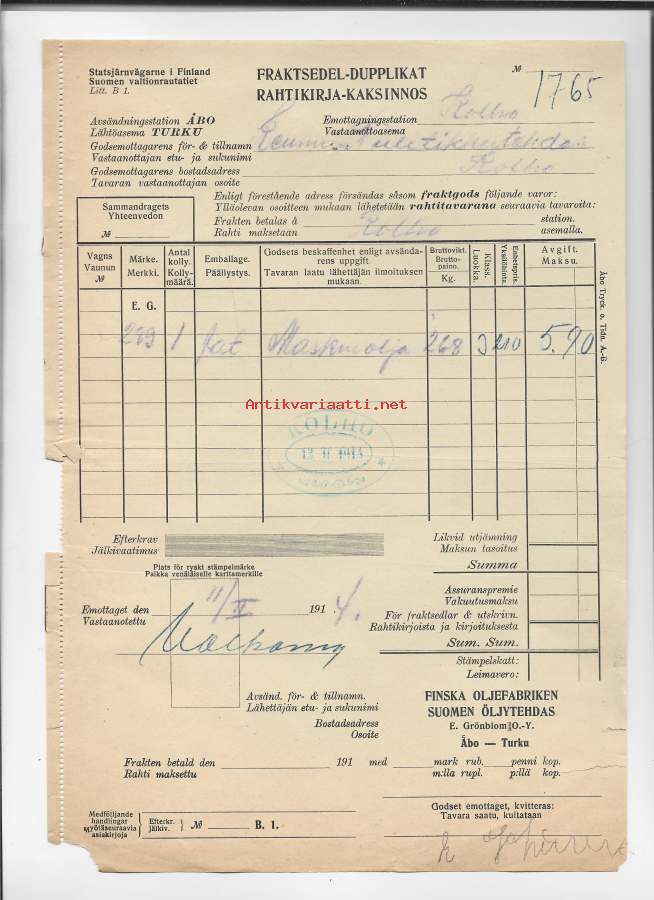 Statsjärnvägarne i Finland
Suomen valtionrautatiet
Litt. B 1.
FRAKTSEDEL-DUPPLIKAT
RAHTIKIRJA-KAKSINNOS
№ 1765
Avsändningsstation ÅBO
Lähtöasema TURKU
Emottagningsstation
Vastaanottoasema
Kolho
Godsemottagarens för- & tillnamn
Vastaanottajan etu- ja sukunimi
Godsemottagarens bostadsadress
Tavaran vastaanottajan osoite
Kolho
Enligt förestående adress försändas såsom fraktgods följande varor:
Ylläolevan osoitteen mukaan lähetetään rahtitavarana seuraavia tavaroita:
Sammandragets
Yhteenvedon
№
Frakten betalas å
Rahti maksetaan
Kolho
station.
asemalla.
Vagns
Vaunun
№
Märke.
Merkki.
Antal
kolly.
Kolly-
määrä.
Emballage.
Päällystys.
Godsets beskaffenhet enligt avsända-
rens uppgift.
Tavaran laatu lähettäjän ilmoituksen
mukaan.
Bruttovikt.
Brutto-
paino.
Kg.
Klass.
Luokka.
Enhetspris.
Yksiköhinta.
Avgift.
Maksu.
E. G.
289 1 fat Maskinolja 268 3 210 5.90
Åbo Tryck. o. Tidn. A.-B.
Antikvariaatti.net
KOLHO
Efterkrav
Jälkivaatimus
Likvid utjämning
Maksun tasoitus
Summa
Plats för ryskt stämpelmärke
Paikka venäläiselle karttamerkille
Assuranspremie
Vakuutusmaksu
Emottaget den
Vastaanotettu
11/IV 1914.
För fraktsedlar & utskrivn.
Rahtikirjoista ja kirjoituksesta
Sum. Sum.
Stämpelskatt:
Leimavero:
Avsänd. för- & tillnamn.
Lähettäjän etu- ja sukunimi
Bostadsadress
Osoite
FINSKA OLJEFABRIKEN
SUOMEN ÖLJYTEHDAS
E. Grönblom O.-Y.
Åbo — Turku
Frakten betald den
Rahti maksettu
191 med
mark rub. penni kop.
m:lla rupl. p:llä kop.
Medföljande
handlingar
Myötäseuraavia
asiakirjoja
Efterkr.
jälkiv.
№ B. 1.
Godset emottaget, kvitteras:
Tavara saatu, kuitataan